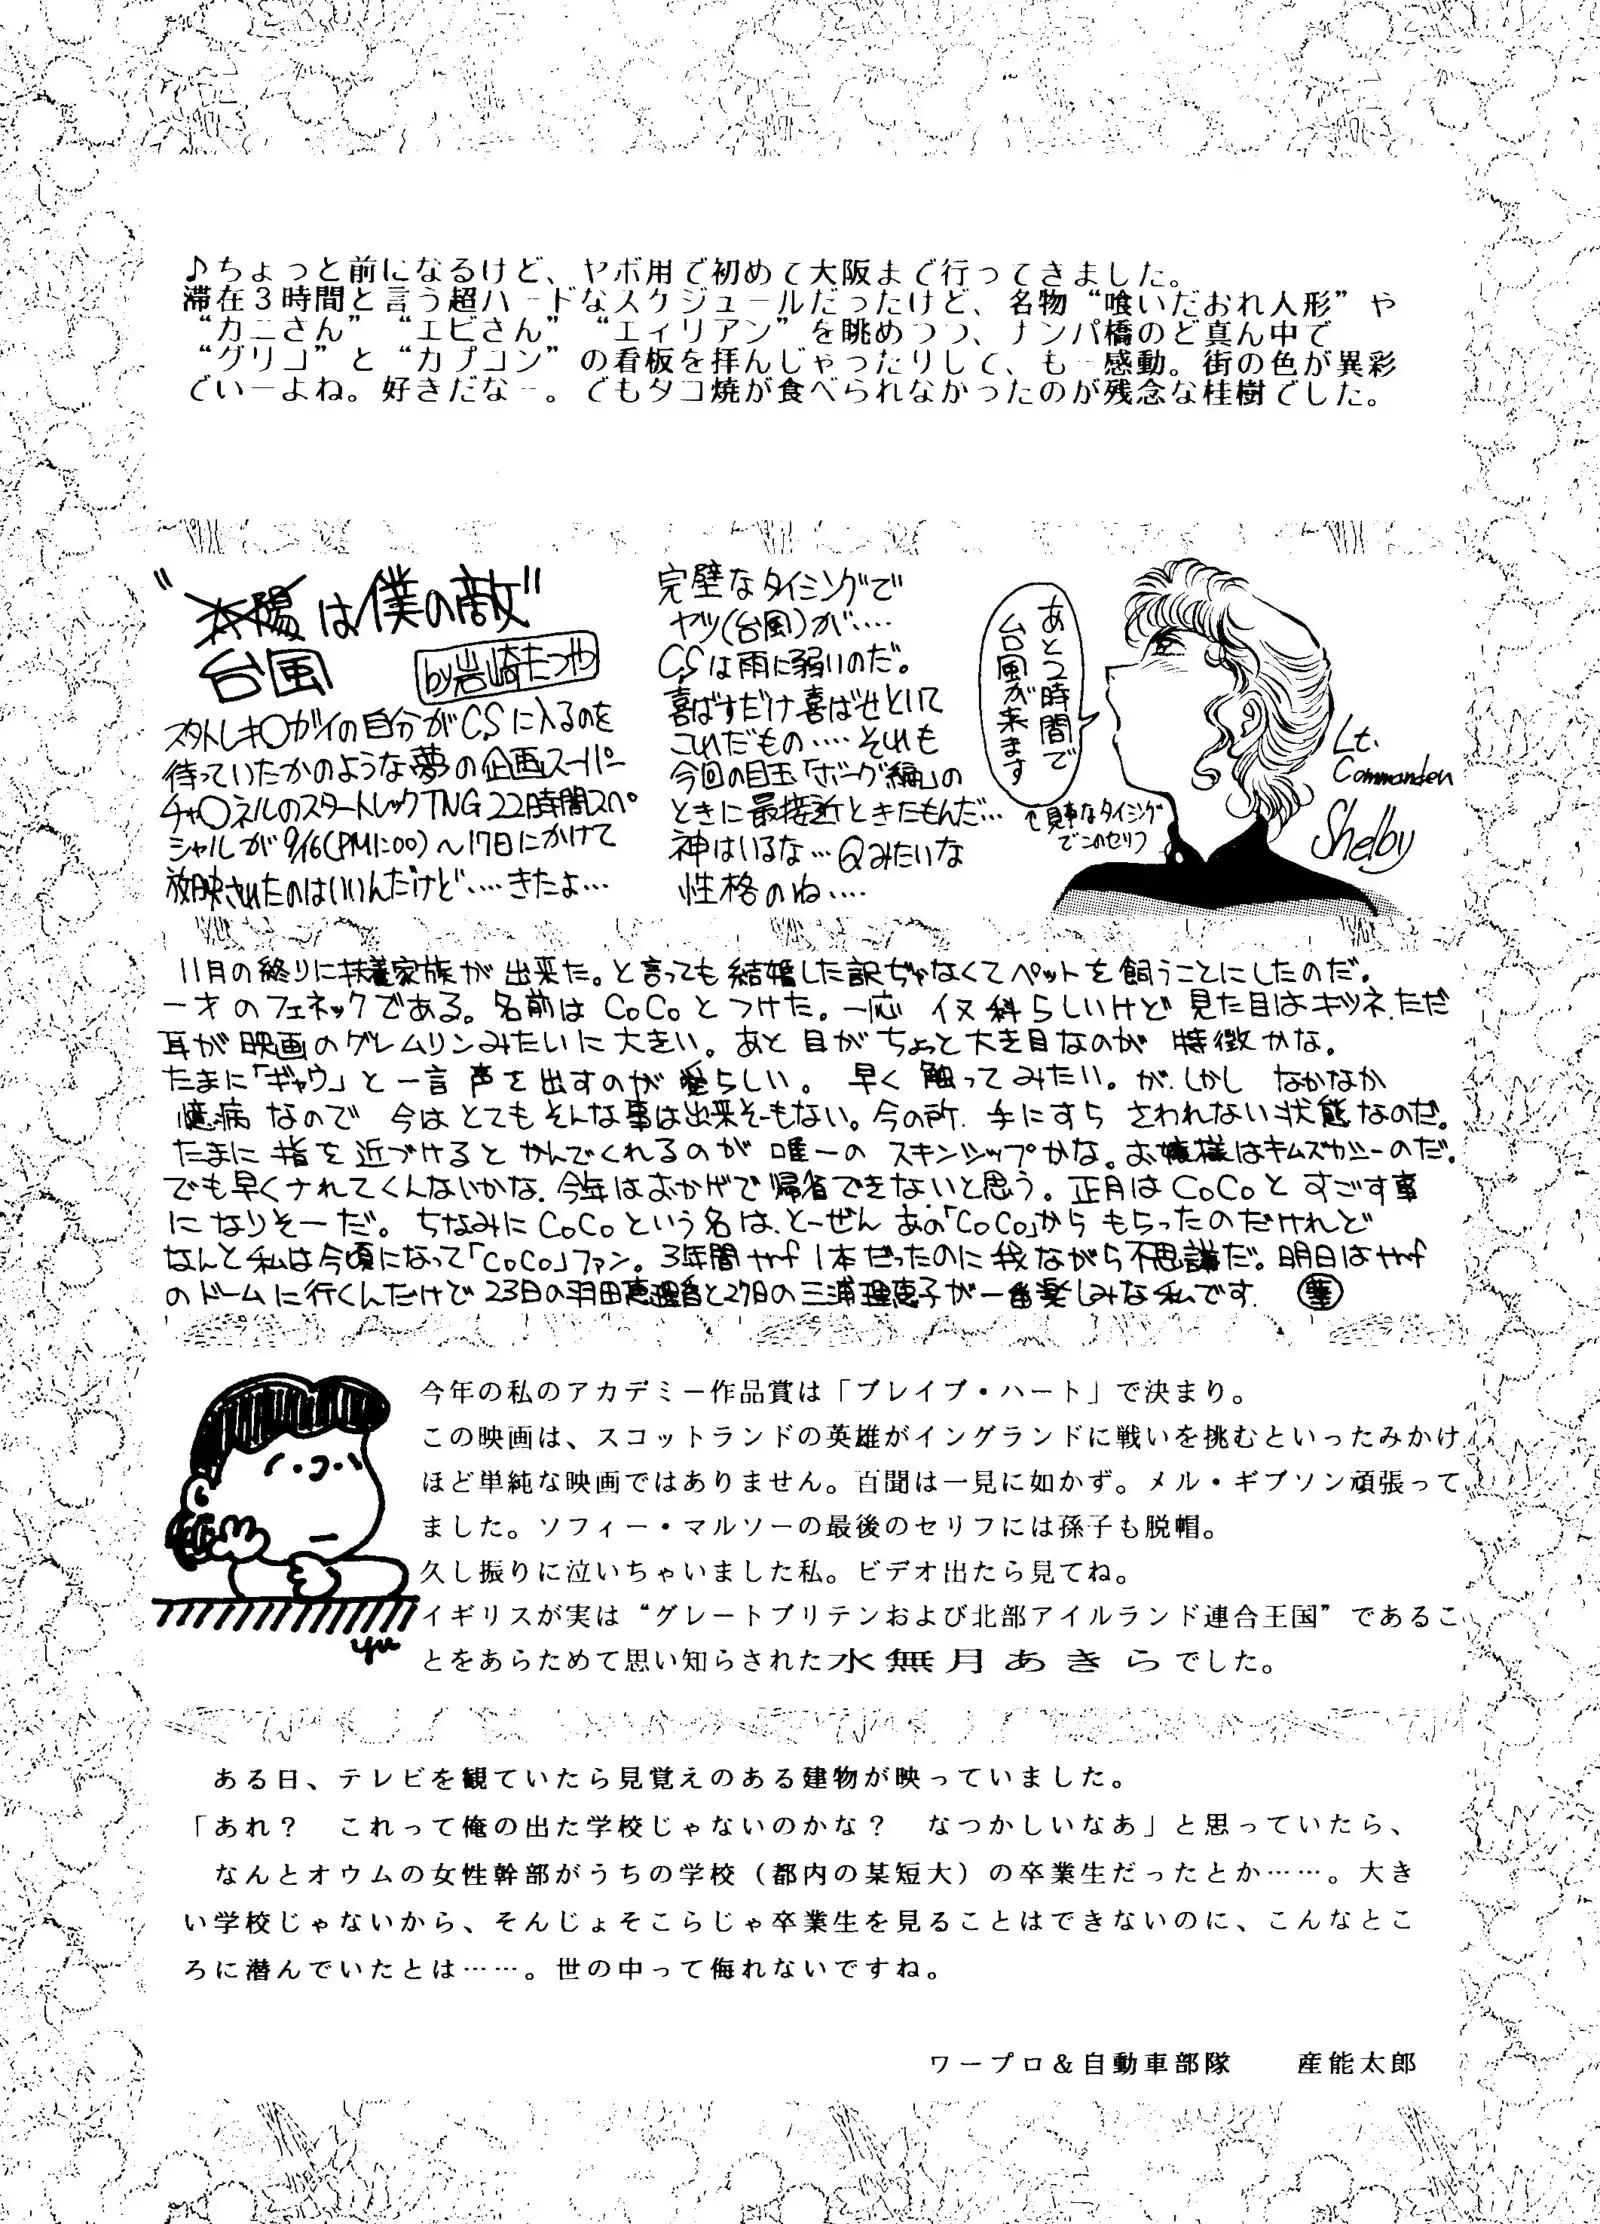 ♪ちょっと前になるけど、ヤボ用で初めて大阪まで行ってきました。
滞在3時間と言う超ハードなスケジュールだったけど、名物“喰いだおれ人形”や
“カニさん”“エビさん”“エィリアン”を眺めつつ、ナンパ橋のど真ん中で
“グリコ”と“カプコン”の看板を拝んじゃったりして、もー感動。街の色が異彩
でいーよね。好きだなー。でもタコ焼が食べられなかったのが残念な桂樹でした。
“太陽は僕の敵”
台風
by岩崎たつや
スタトレキ〇ガイの自分がCSに入るのを
待っていたかのような夢の企画スーパー
チャ〇ネルのスタートレックTNG22時間スペ
シャルが9/16(PM1:00)〜17日にかけて
放映されたのはいいんだけど‥‥きたよ…
完璧なタイミングで
ヤツ(台風)が‥‥
CSは雨に弱いのだ。
喜ばすだけ喜ばせといて
これだもの‥‥それも
今回の目玉「ボーグ編」の
ときに最接近ときたもんだ…
神はいるな…Qみたいな
性格のね‥‥
あと2時間で
台風が来ます
↑見事なタイミング
でこのセリフ
Lt.
Commander
Shelby
11月の終りに扶養家族が出来た。と言っても結婚した訳ぢゃなくてペットを飼うことにしたのだ。
一才のフェネックである。名前はCoCoとつけた。一応イヌ科らしいけど見た目はキツネ、ただ
耳が映画のグレムリンみたいに大きい。あと目がちょっと大き目なのが特徴かな。
たまに「ギャウ」と一言声を出すのが愛らしい。早く触ってみたい。が、しかしなかなか
憶病なので今はとてもそんな事は出来そーもない。今の所、手にすらさわれない状態なのだ。
たまに指を近づけるとかんでくれるのが唯一のスキンシップかな。お嬢様はキムズカシーのだ。
でも早くナれてくんないかな、今年はおかげで帰省できないと思う。正月はCoCoとすごす事
になりそーだ。ちなみにCoCoという名は、とーぜんあの「CoCo」からもらったのだけれど
なんと私は今頃になって「CoCo」ファン。3年間ribbon1本だったのに我ながら不思議だ。明日は
のドームに行くんだけで23日の羽田恵理香と27日の三浦理恵子が一番楽しみな私です。
今年の私のアカデミー作品賞は「ブレイブ・ハート」で決まり。
この映画は、スコットランドの英雄がイングランドに戦いを挑むといったみかけ
ほど単純な映画ではありません。百聞は一見に如かず。メル・ギブソン頑張って
ました。ソフィー・マルソーの最後のセリフには孫子も脱帽。
久し振りに泣いちゃいました私。ビデオ出たら見てね。
イギリスが実は“グレートブリテンおよび北部アイルランド連合王国”であるこ
とをあらためて思い知らされた水無月あきらでした。
yu
ある日、テレビを観ていたら見覚えのある建物が映っていました。
「あれ？　これって俺の出た学校じゃないのかな？　なつかしいなあ」と思っていたら、
なんとオウムの女性幹部がうちの学校（都内の某短大）の卒業生だったとか……。大き
い学校じゃないから、そんじょそこらじゃ卒業生を見ることはできないのに、こんなとこ
ろに潜んでいたとは……。世の中って侮れないですね。
ワープロ＆自動車部隊　　産能太郎